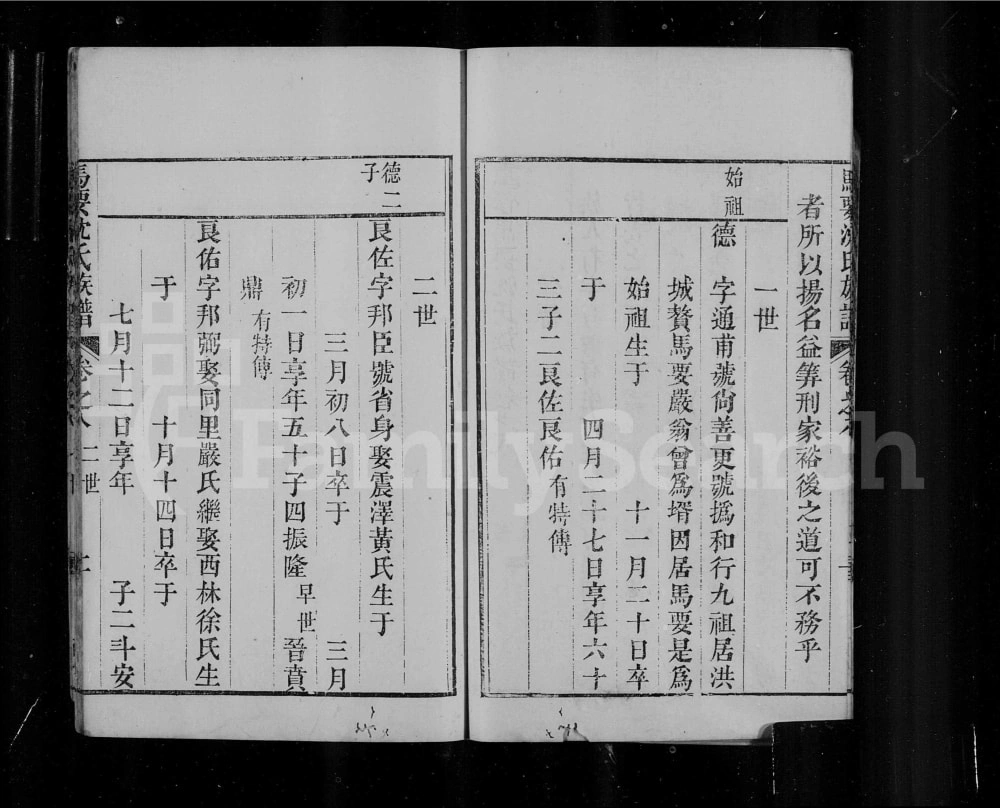 者所以揚名益筭刑家裕後之道可不務乎
一世
始祖
德 字通甫號尙善更號撝和行九祖居洪
城贅馬要嚴翁曾爲壻因居馬要是爲
始祖生于 十一月二十日卒
于 四月二十七日享年六十
三子二良佐良佑有特傳
二世
德二
子
良佐字邦臣號省身娶震澤黃氏生于
三月初八日卒于 三月
初一日享年五十子四振隆早世晉賁
鼎有特傳
良佑字邦弼娶同里嚴氏繼娶西林徐氏生
于 十月十四日卒于
七月十二日享年 子二斗安
馬要沈氏族譜 卷之八 二世
FamilySearch